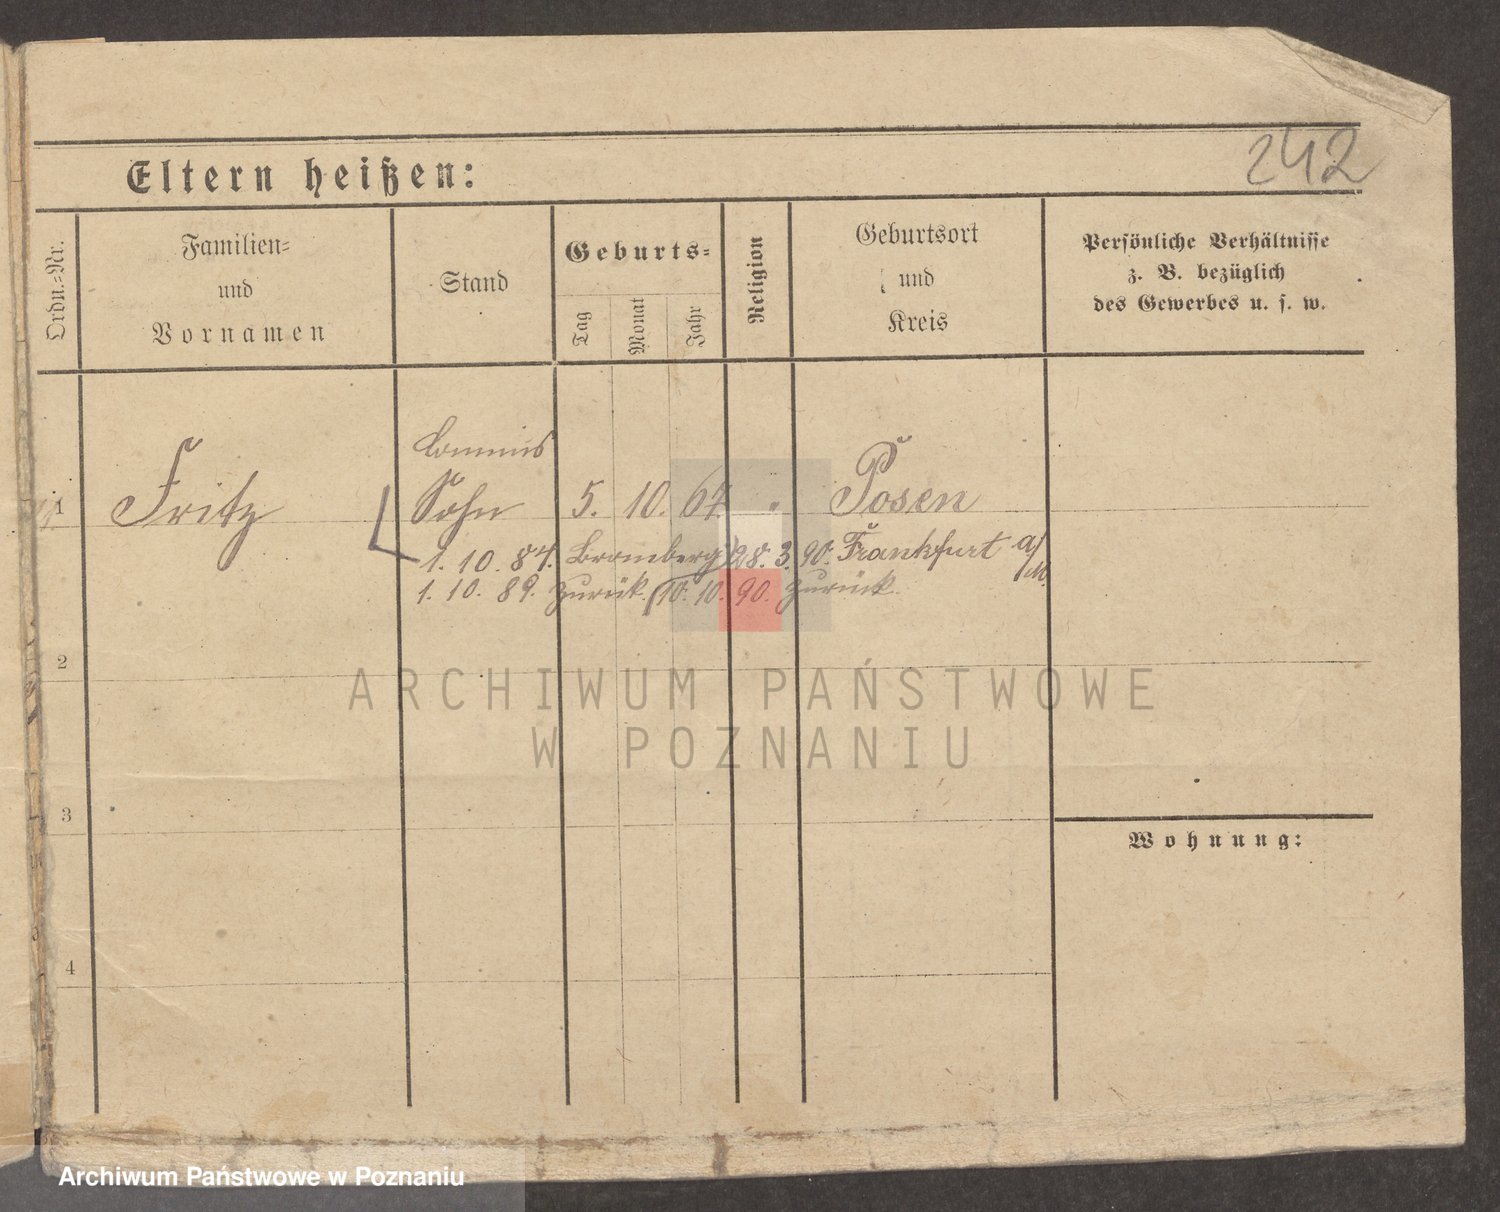 242
Eltern heißen:
Ordn.-Nr.
Familien-
und
Vornamen
Stand
Geburts-
Tag
Monat
Jahr
Religion
Geburtsort
und
Kreis
Persönliche Verhältnisse
z. B. bezüglich
des Gewerbes u. s. w.
Commis
1 Fritz Sohn 5. 10. 67. " Posen
1. 10. 87. Bromberg 28. 3. 90. Frankfurt a/M.
1. 10. 89. zurük. 10. 10. 90. zurück.
2
ARCHIWUM PAŃSTWOWE
W POZNANIU
3
Wohnung:
4
Archiwum Państwowe w Poznaniu